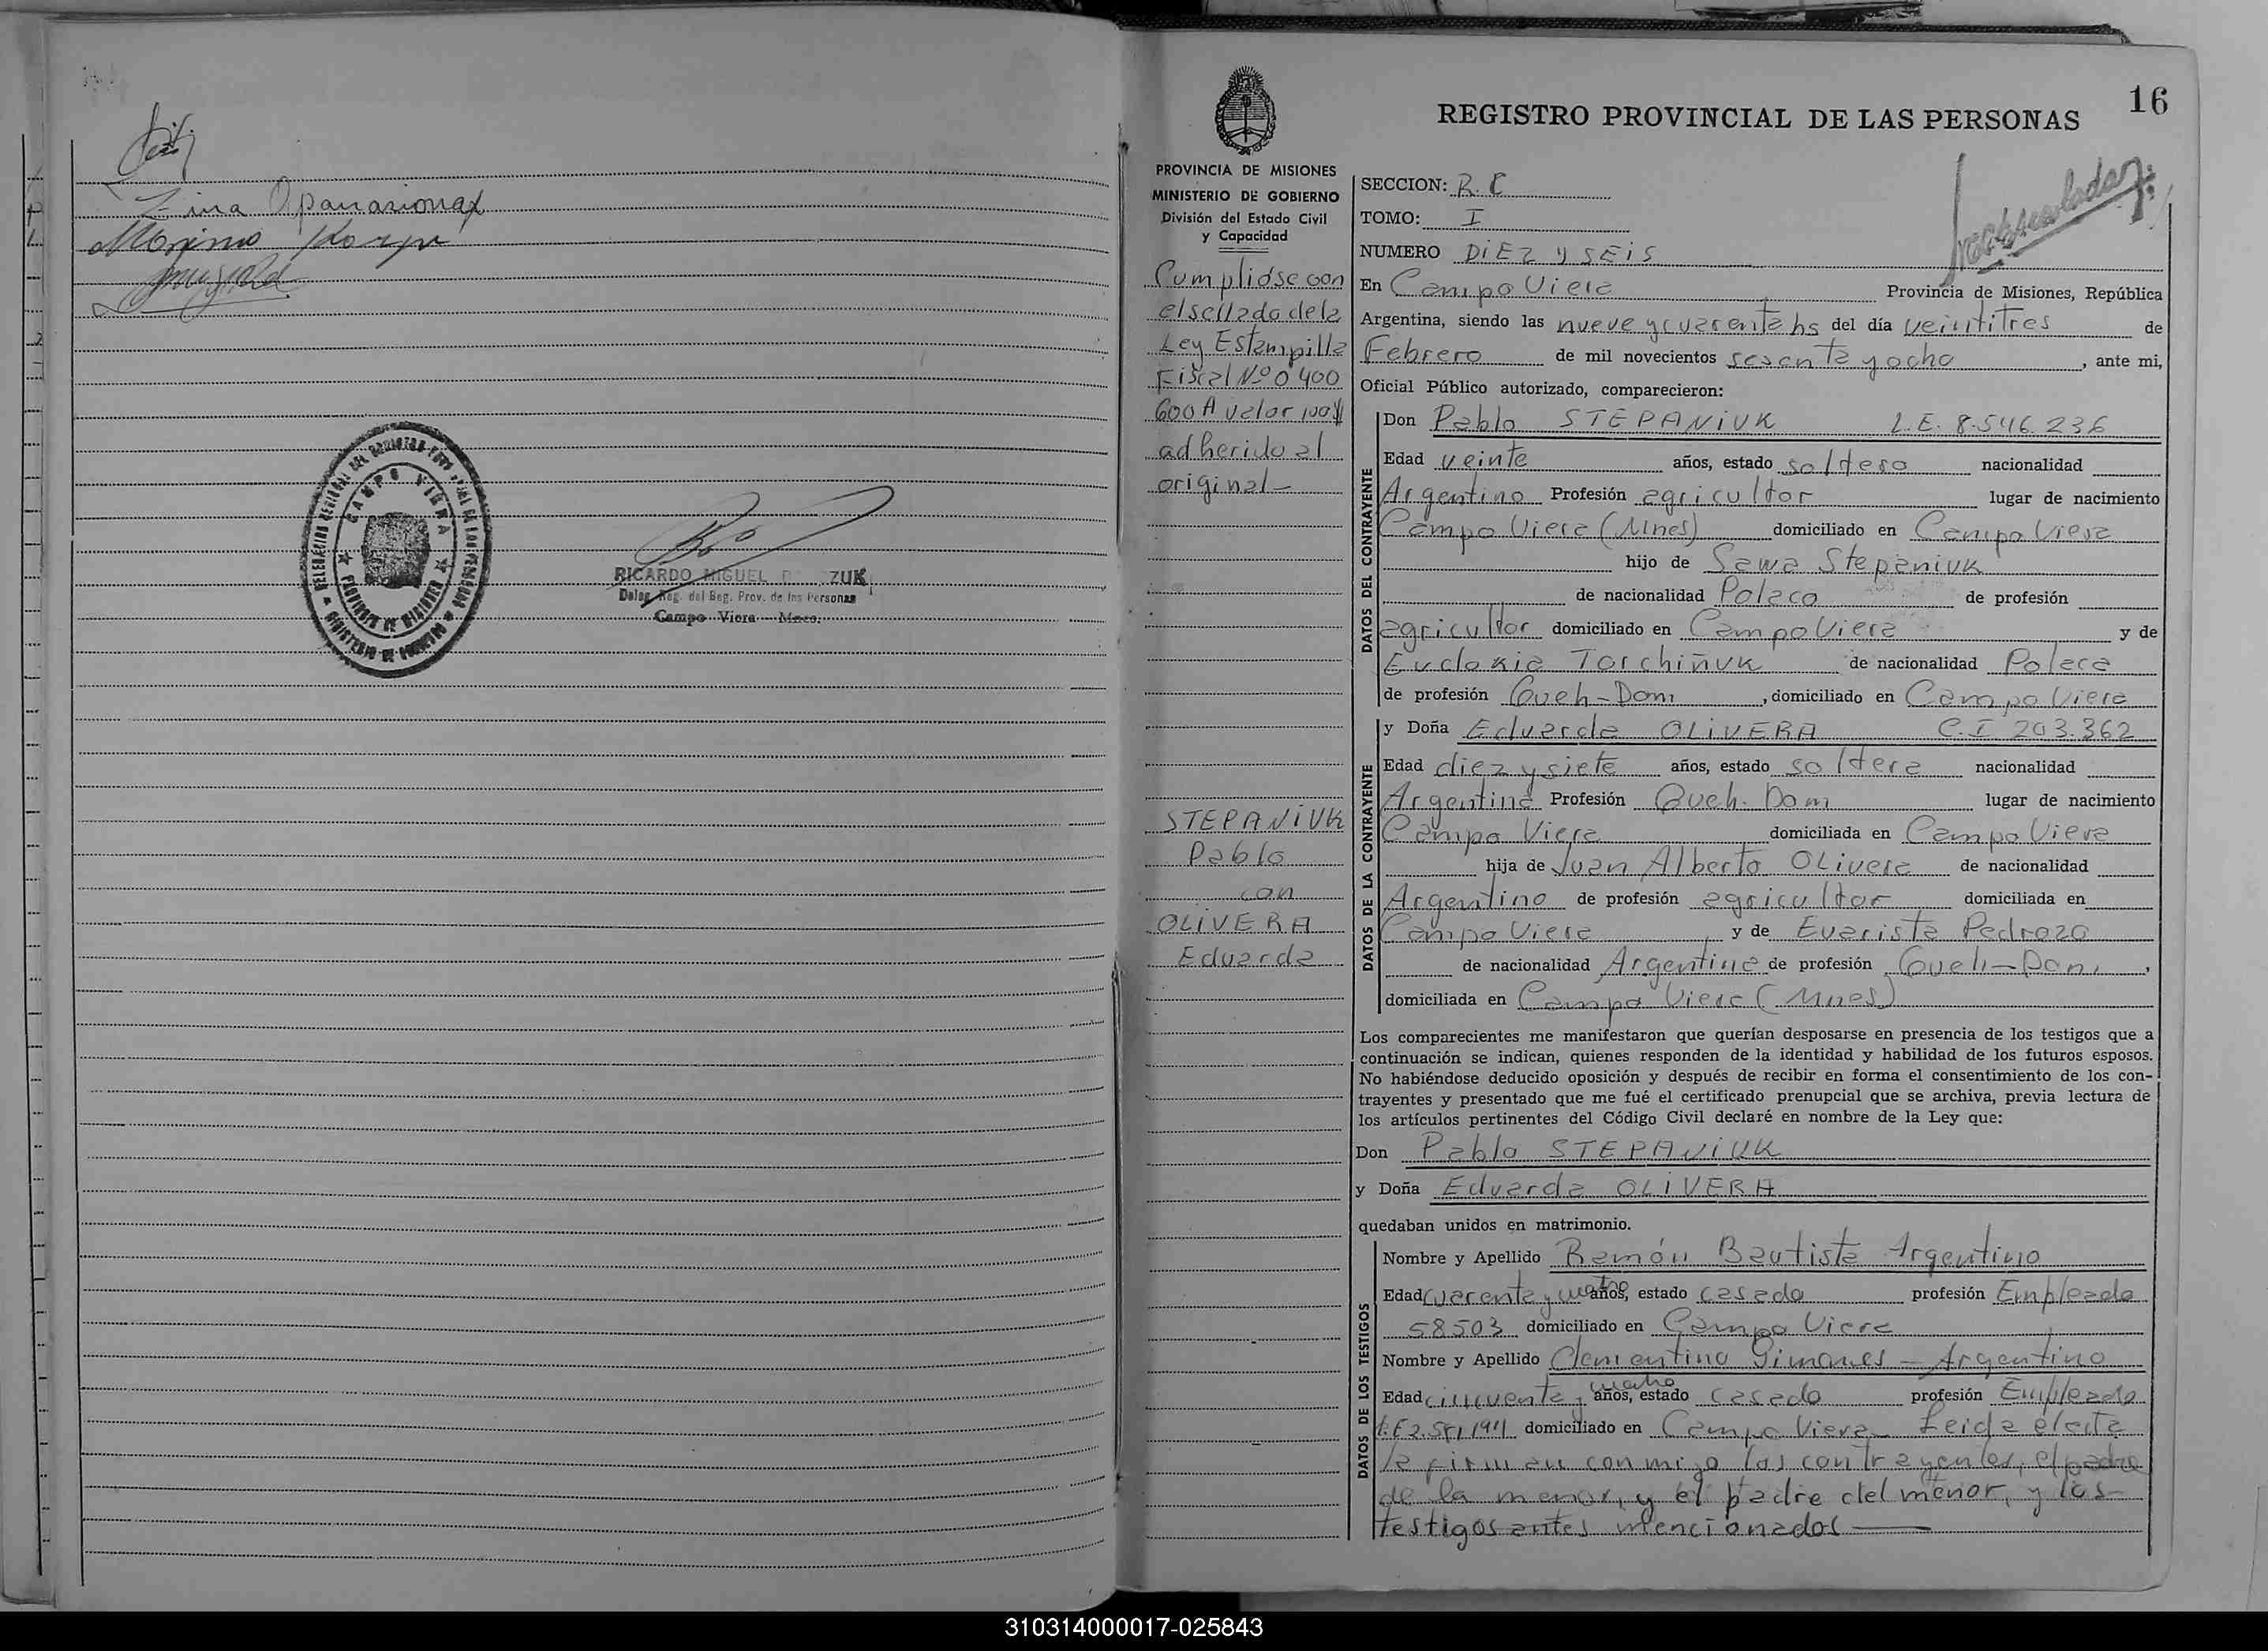 Zina Opanasionax
RICARDO MIGUEL ZUK
Deleg. Reg. del Reg. Prov. de las Personas
Campo Viera Mnes.
CAMPO VIERA
PROVINCIA DE MISIONES
16
REGISTRO PROVINCIAL DE LAS PERSONAS
PROVINCIA DE MISIONES
MINISTERIO DE GOBIERNO
División del Estado Civil
y Capacidad
Cumplióse con
el sellado de la
Ley Estampilla
Fiscal Nº 0400
600 A valor 100
adherido al
original-
STEPANIUK
Pablo
con
OLIVERA
Eduarda
SECCION: R.C
TOMO: I
NUMERO DIEZ y SEIS
En Campo Viera Provincia de Misiones, República
Argentina, siendo las nueve y cuarenta hs del día veintitres de
Febrero de mil novecientos sesenta y ocho, ante mi,
Oficial Público autorizado, comparecieron:
DATOS DEL CONTRAYENTE
Don Pablo STEPANIUK L.E. 8.546.236
Edad veinte años, estado soltero nacionalidad
Argentino Profesión agricultor lugar de nacimiento
Campo Viera (Mnes) domiciliado en Campo Viera
hijo de Sawa Stepaniuk
de nacionalidad Polaco de profesión
agricultor domiciliado en Campo Viera y de
Eudokia Torchiñuk de nacionalidad Polaca
de profesión Queh-Dom, domiciliado en Campo Viera
DATOS DE LA CONTRAYENTE
y Doña Eduarda OLIVERA C.I 203.362
Edad diez y siete años, estado soltera nacionalidad
Argentina Profesión Queh. Dom lugar de nacimiento
Campo Viera domiciliada en Campo Viera
hija de Juan Alberto OLivera de nacionalidad
Argentino de profesión agricultor domiciliada en
Campo Viera y de Evarista Pedrozo
de nacionalidad Argentina de profesión Queh-Dom,
domiciliada en Campo Viera (Mnes)
Los comparecientes me manifestaron que querían desposarse en presencia de los testigos que a
continuación se indican, quienes responden de la identidad y habilidad de los futuros esposos.
No habiéndose deducido oposición y después de recibir en forma el consentimiento de los con-
trayentes y presentado que me fué el certificado prenupcial que se archiva, previa lectura de
los artículos pertinentes del Código Civil declaré en nombre de la Ley que:
Don Pablo STEPANIUK
y Doña Eduarda OLIVERA
quedaban unidos en matrimonio.
DATOS DE LOS TESTIGOS
Nombre y Apellido Ramón Bautista Argentino
Edad cuarenta y cuatro años, estado casado profesión Empleado
58503 domiciliado en Campo Viera
Nombre y Apellido Clementino Gimenes - Argentino
Edad cincuenta y cuatro años, estado casado profesión Empleado
domiciliado en Campo Viera Leida el acta
la firman conmigo los contrayentes, el padre
de la menor, y el padre del menor, y los
testigos antes mencionados
310314000017-025843